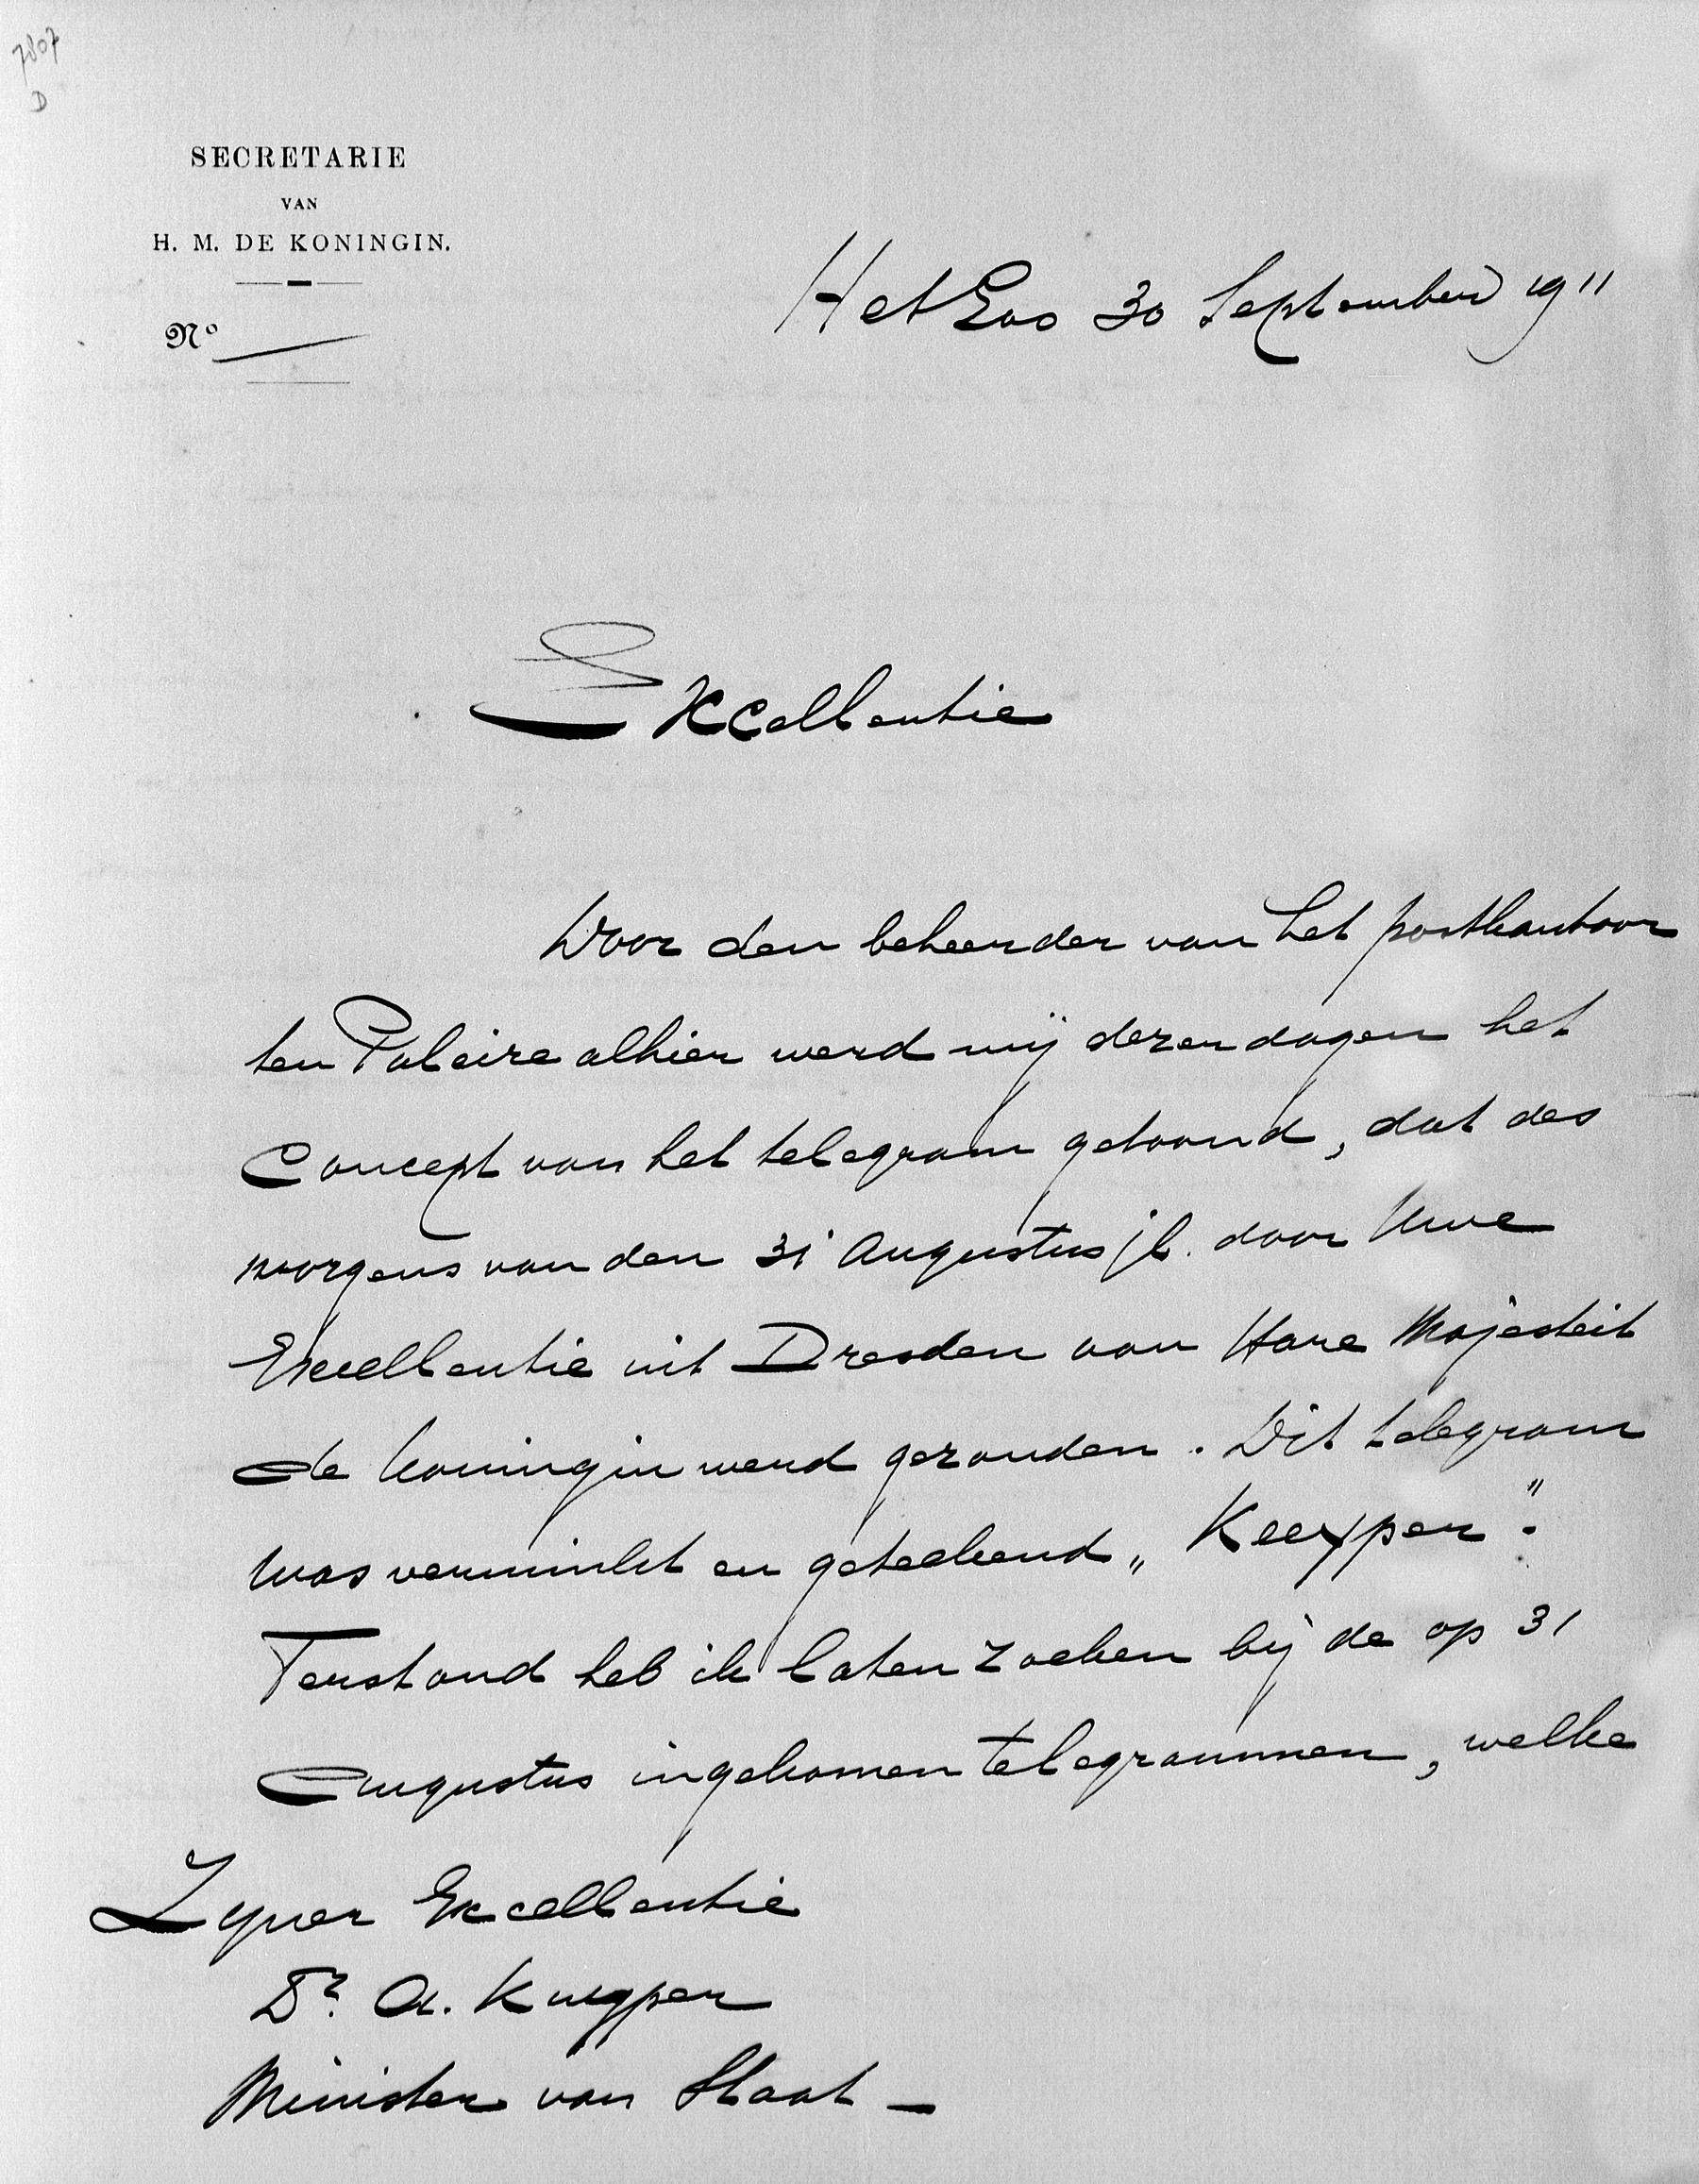 7807
D
SECRETARIE
VAN
H. M. DE KONINGIN.
No
Het Loo 30 September 1911
Excellentie
Door den beheerder van het postkantoor
ten Paleize alhier werd mij dezer dagen het
Concept van het telegram getoond, dat des
morgens van den 31 Augustus jl. door Uwe
Excellentie uit Dresden aan Hare Majesteit
de Koningin werd gezonden. Dit telegram
was verminkt en geteekend „Keeyper".
Terstond heb ik laten zoeken bij de op 31
Augustus ingekomen telegrammen, welke
Zyner Excellentie
Dr. A. Kuyper
Minister van Staat —